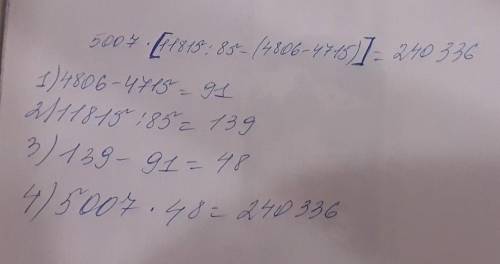 5007 · [11815 : 85 - (4806 - 4715)] = 240336
1) 4806 - 4715 = 91
2) 11815 : 85 = 139
3) 139 - 91 = 48
4) 5007 · 48 = 240336